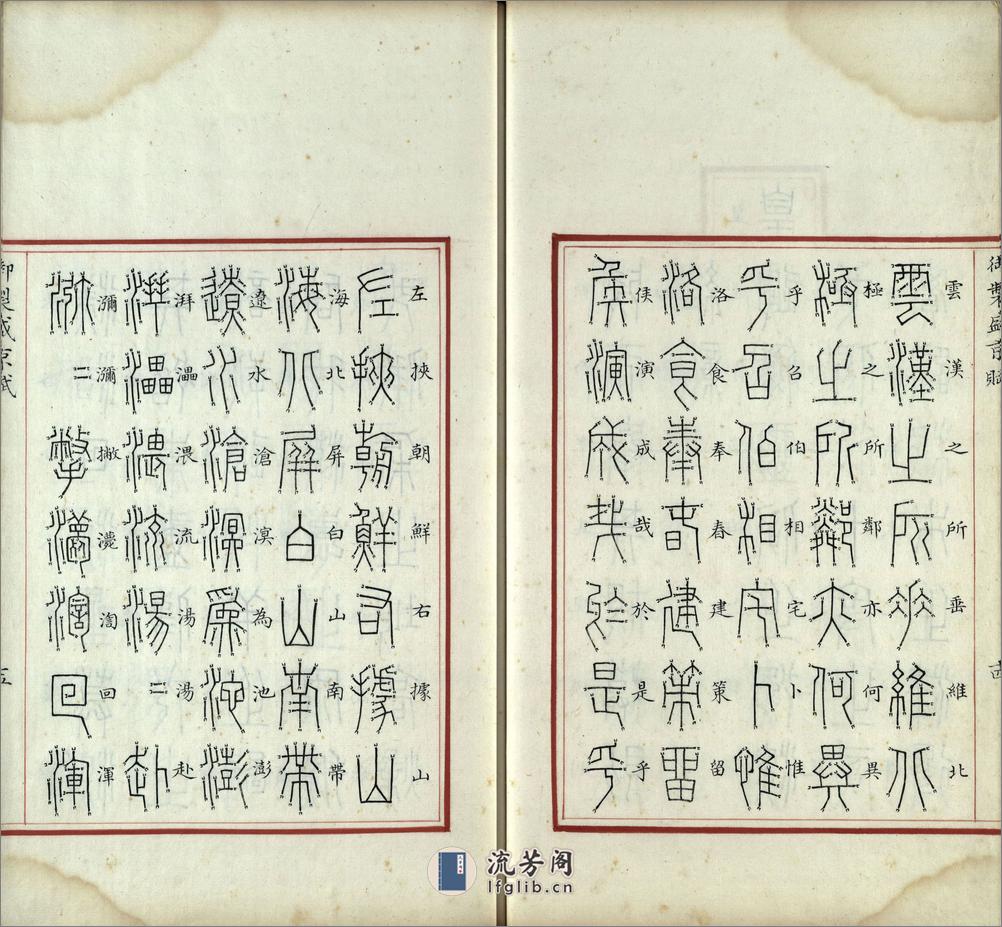 御製盛京賦
雲漢之所垂維北
極之所鄰亦何異
乎召伯相宅卜惟
洛食奉春建策留
侯演成哉於是乎
左挾朝鮮右據山
海北屏白山南帶
遼水滄溟為池澎
湃㵽渨流湯湯赴
瀰瀰撇灪㵧回渾
御製盛京賦
流芳阁
lfglib.cn